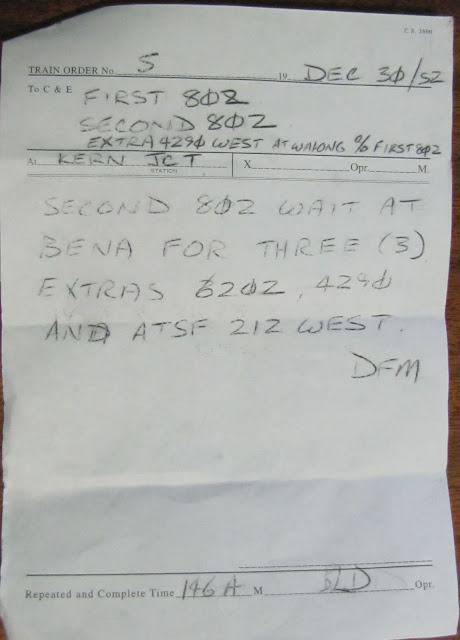 C. S. 2860
TRAIN ORDER No. 5 19 DEC 30/52
To C & E FIRST 802
SECOND 802
EXTRA 4290 WEST AT WALONG % FIRST 802
At KERN JCT X Opr. M
STATION
SECOND 802 WAIT AT
BENA FOR THREE (3)
EXTRAS 6202, 4290
AND ATSF 212 WEST.
DFM
Repeated and Complete Time 146 A M BLD Opr.